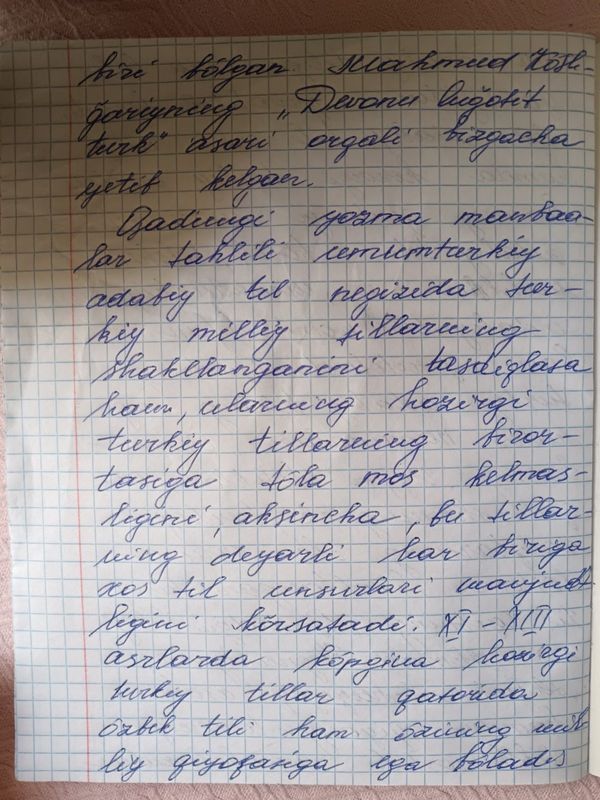 biri bõlgan Mahmud Kosh-
ğariyning „Devonu luğotit
turk" asari orqali bizgacha
yetib kelgan.
Qadimgi yozma manbaa-
lar tahlili umumturkiy
adabiy til negizida tur-
kiy milliy tillarning
shakllanganini tasdiqlasa
ham, ularning hozirgi
turkiy tillarning biror-
tasiga tõla mos kelmas-
ligini, aksincha, bu tillar-
ning deyarli har biriga
xos til unsurlari mavjud-
ligini kõrsatadi. XI - XIII
asrlarda kõpgina hozirgi
turkiy tillar qatorida
õzbek tili ham õzining mil-
liy qiyofasiga ega bõladi